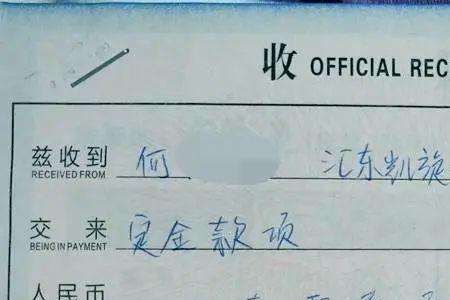 收 OFFICIAL REC
兹收到 何 汇东凯旋
RECEIVED FROM
交来 定金款项
BEING IN PAYMENT
人民币